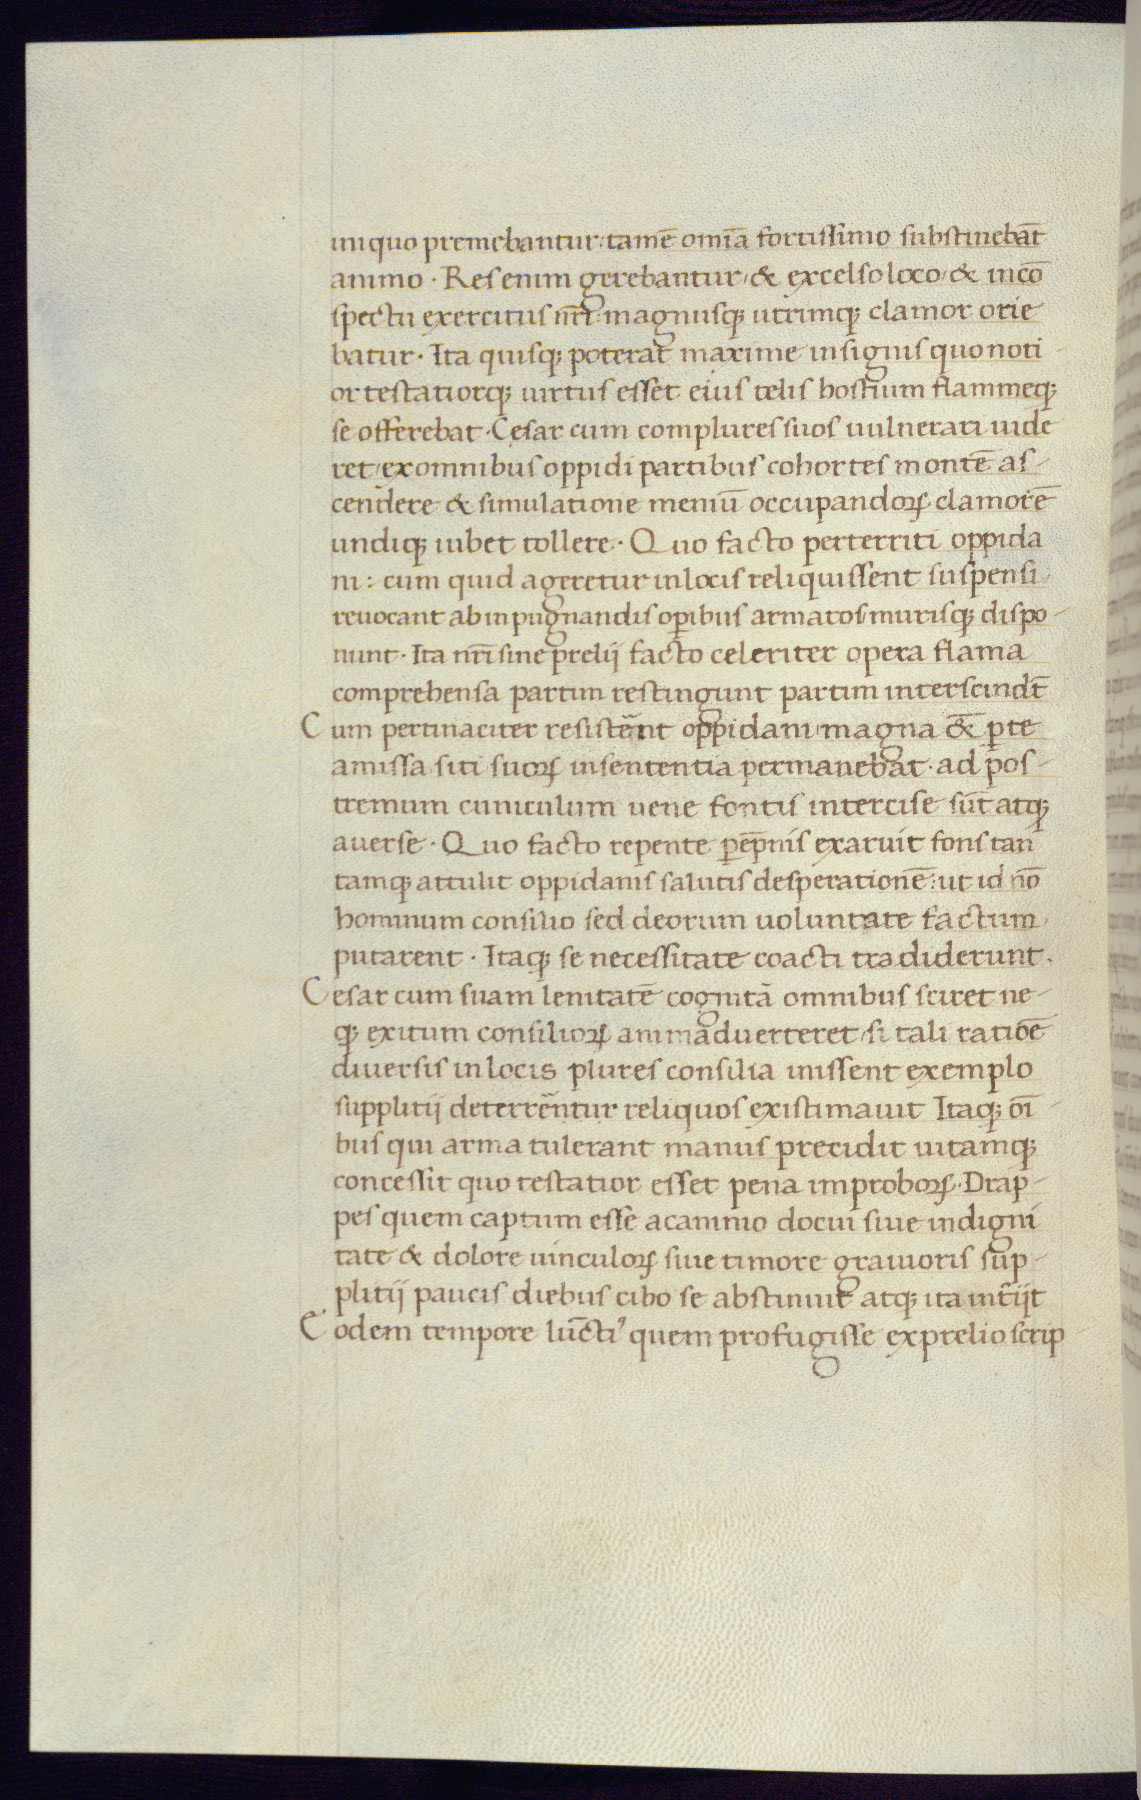 iniquo premebantur: tamē om̄ia fortissimo substinebāt
animo · Res enim gerebantur, & excelso loco, & in cō
spectu exercitus nr̄i: magnusq; utrimq; clamor orie
batur · Ita quisq; poterat maxime insignis quo noti
or testatiorq; uirtus esset eius telis hostium flammeq;
se offerebat · Cęsar cum complures suos uulnerari uide
ret, ex omnibus oppidi partibus cohortes montē as-
cendere & simulatione meniū occupandoꝝ clamorē
undiq; iubet tollere · Quo facto perterriti oppida
ni: cum quid ageretur in locis reliquissent suspensi,
reuocant ab inpugnandis oꝑibus armatos, murisq; dispo-
nunt · Ita nr̄i sine prelij facto celeriter opera flama
comprehensa partim restingunt partim interscindt̄
Cum pertinaciter resistēnt oppidani, magna &̄ ꝑte
amissa siti suoꝝ in sententia permanebāt · ad pos-
tremum cuniculum uene fontis intercise sūt atq;
auerse · Quo facto repente ꝑep̄nis exaruit fons tan
tamq; attulit oppidanis salutis desperationē: ut id nō
hominum consilio sed deorum uoluntate factum
putarent · Itaq; se necessitate coacti tradiderunt.
Cesar cum suam lenitatē cognitā omnibus sciret ne-
q; exitum consilioꝝ animaduerteret, si tali ratiōe
diuersis in locis plures consilia inissent exemplo
supplitij deterrēntur reliquos existimauit Itaq; oī-
bus qui arma tulerant manus precidit uitamq;
concessit quo testatior esset pena improboꝝ · Drap-
pes quem captum esse a caminio docui siue indigni
tate & dolore uinculoꝝ siue timore grauioris sup-
plitij paucis diebus cibo se abstinuit atq; ita int̄ijt
Eodem tempore lūcti' quem profugisse ex prelio scrip-